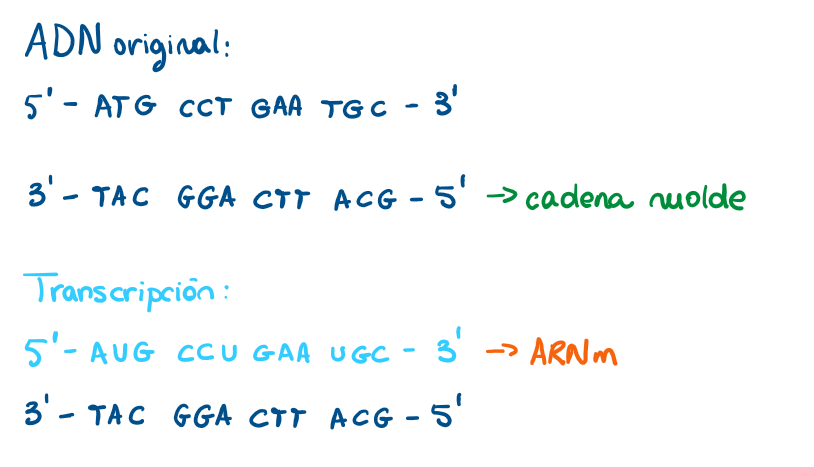 ADN original:
5' - ATG CCT GAA TGC - 3'
3' - TAC GGA CTT ACG - 5' → cadena molde
Transcripción:
5' - AUG CCU GAA UGC - 3' → ARNm
3' - TAC GGA CTT ACG - 5'